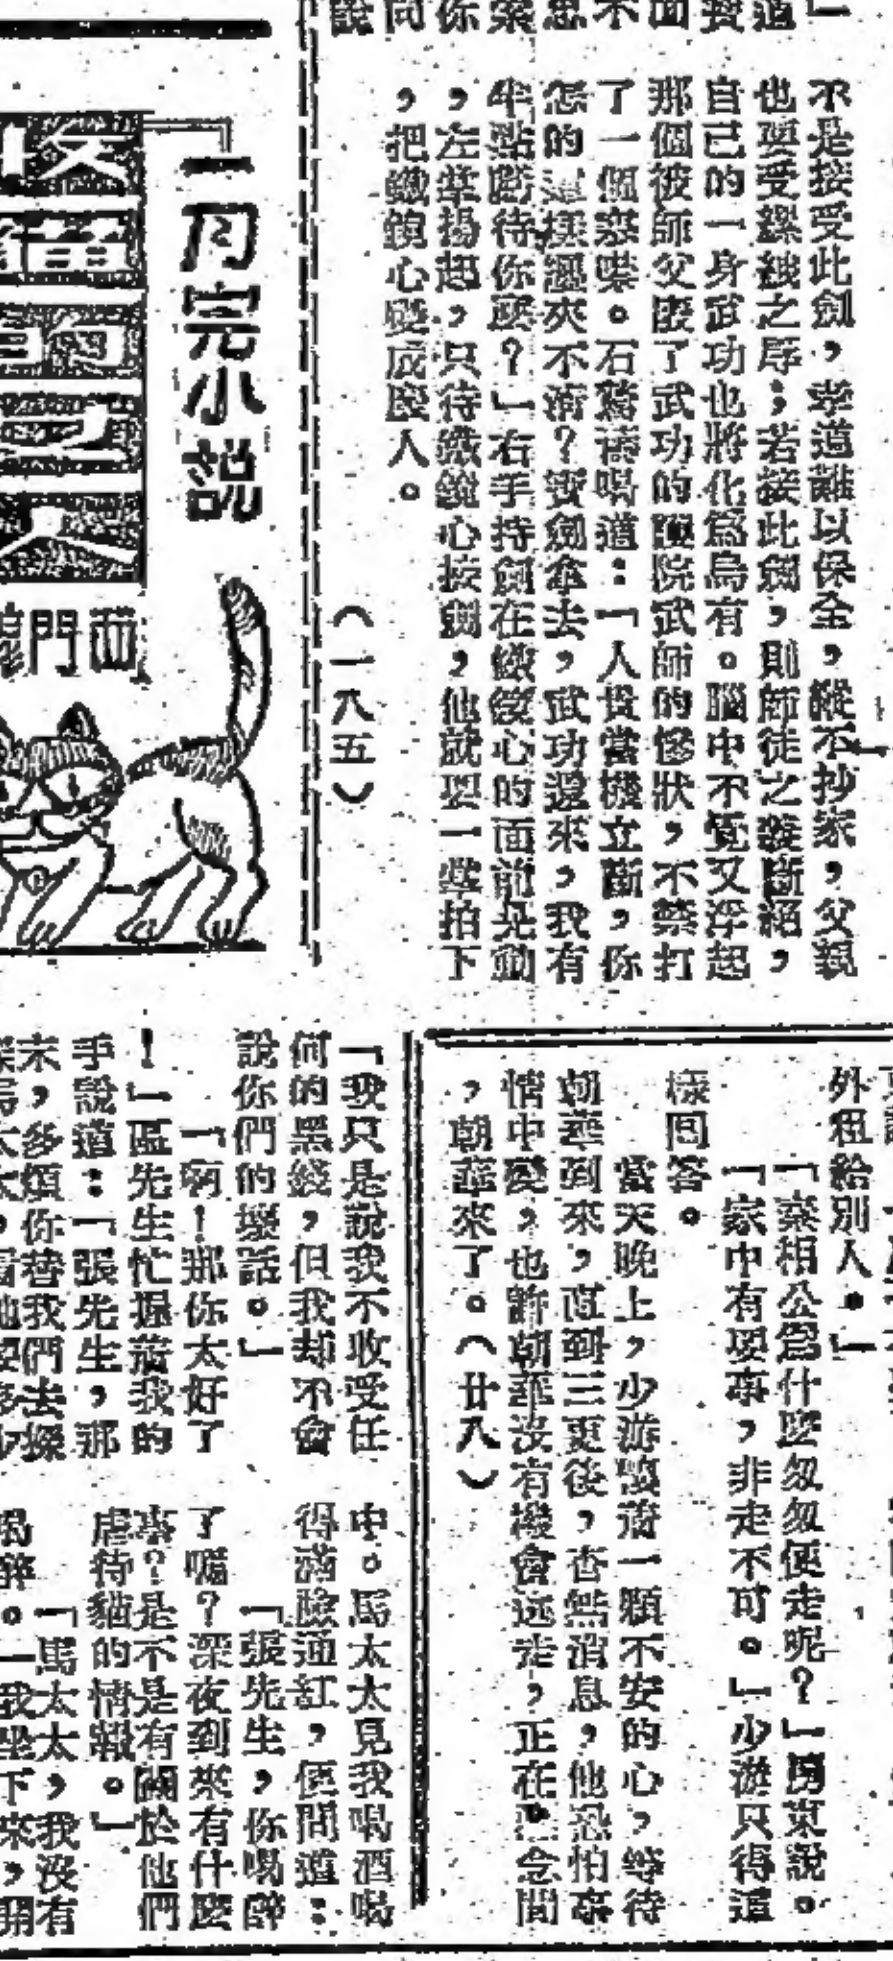 不是接受此劍，孝道難以保全，縱不抄家，父親
也要受縲絏之辱；若接此劍，則師徒之義斷絕，
自己的一身武功也將化爲烏有。腦中不覺又浮起
那個被師父廢了武功的護院武師的慘狀，不禁打
了一個寒噤。石驚濤喝道：「人貴當機立斷，你
怎的這樣逕夾不清？寶劍拿去，武功還來，我有
半點虧待你麽？」右手持劍在鐵鏡心的面前晃動
，左掌揚起，只待鐵鏡心接劍，他就要一掌拍下
，把鐵鏡心變成廢人。
（一八五）
外租給別人。」
「秦相公爲什麽匆匆便走呢？」房東說。
「家中有要事，非走不可。」少游只得這
樣回答。
當天晚上，少游懸着一顆不安的心，等待
朝華到來，直到三更後，杳無消息，他恐怕事
情中變，也許朝華沒有機會逃走，正在 念間
，朝華來了。（廿八）
一月完小說
的
之
人
西門
「我只是說我不收受任
何的黑錢，但我却不會
說你們的壞話。」
「啊！那你太好了
！」區先生忙握着我的
手說道：「張先生，那
末，多煩你替我們去探
中。馬太太見我喝酒喝
得滿臉通紅，便問道：
「張先生，你喝醉
了嗎？深夜到來有什麽
事？是不是有關於他們
虐待貓的情報。」
「馬太太，我沒有
喝醉。」我坐下來，開